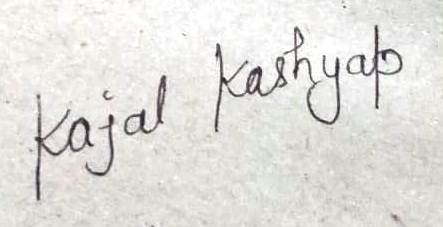 Kajal Kashyap